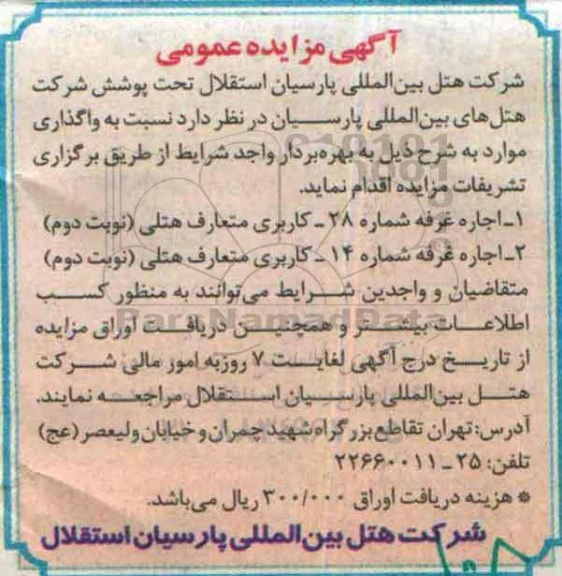 آگهی مزایده عمومی
شرکت هتل بین‌المللی پارسیان استقلال تحت پوشش شرکت
هتل‌های بین‌المللی پارسیان در نظر دارد نسبت به واگذاری
موارد به شرح ذیل به بهره‌بردار واجد شرایط از طریق برگزاری
تشریفات مزایده اقدام نماید.
۱ـ اجاره غرفه شماره ۲۸ ـ کاربری متعارف هتلی (نوبت دوم)
۲ـ اجاره غرفه شماره ۱۴ ـ کاربری متعارف هتلی (نوبت دوم)
متقاضیان و واجدین شرایط می‌توانند به منظور کسب
اطلاعات بیشتر و همچنین دریافت اوراق مزایده
از تاریخ درج آگهی لغایت ۷ روز به امور مالی شرکت
هتل بین‌المللی پارسیان استقلال مراجعه نمایند.
آدرس: تهران تقاطع بزرگراه شهید چمران و خیابان ولیعصر (عج)
تلفن: ۲۵ ـ ۲۲۶۶۰۰۱۱
* هزینه دریافت اوراق ۳۰۰/۰۰۰ ریال می‌باشد.
شرکت هتل بین‌المللی پارسیان استقلال
ParsNamadData